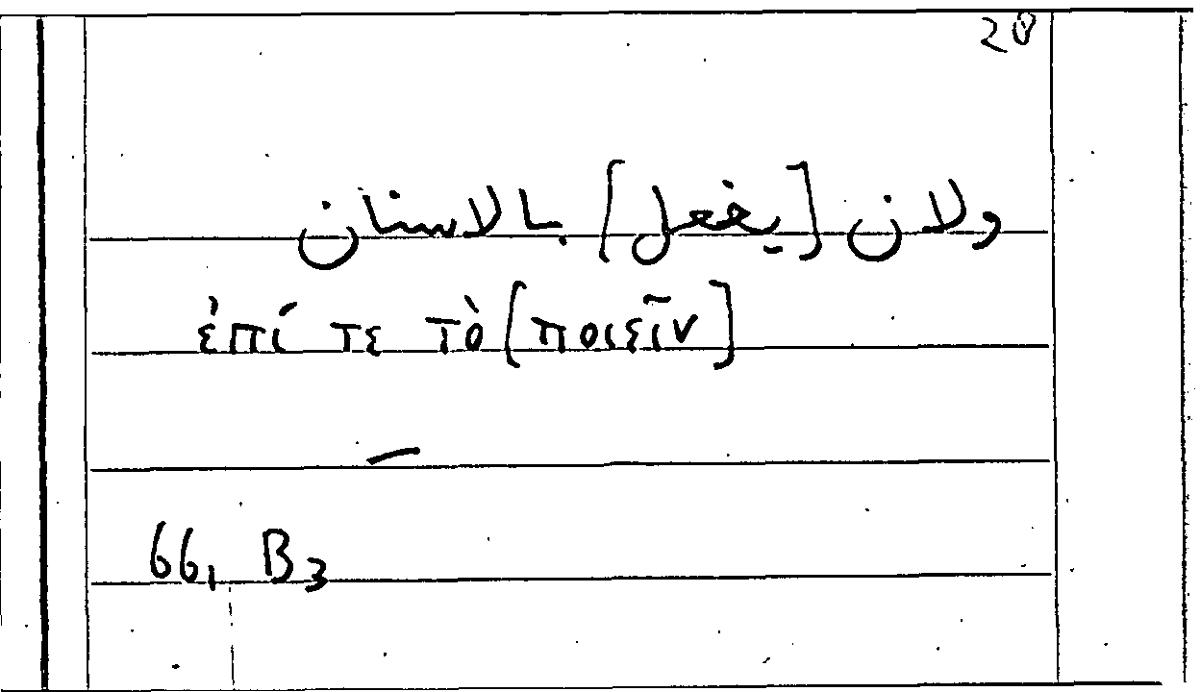 20
ولان [يفعل] بالاسنان
ἐπί τε τὸ [ποιεῖν]
—
66, B3